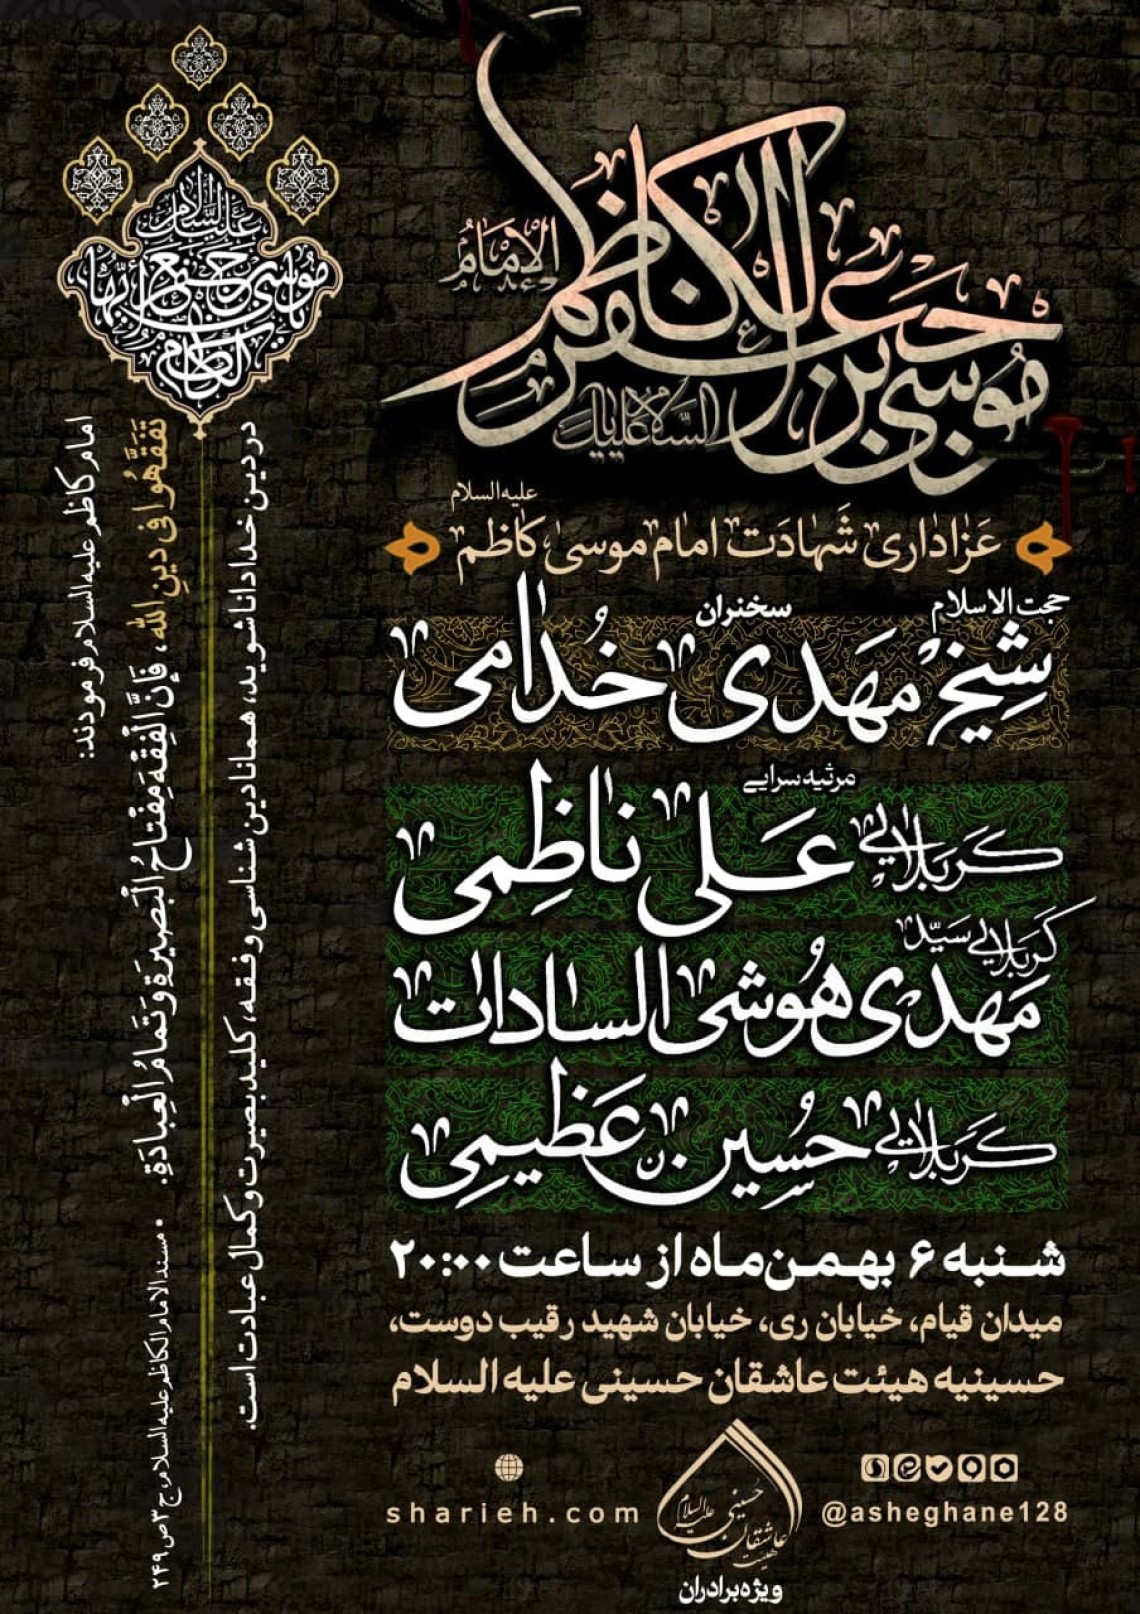 الإمام
موسی بن جعفر الکاظم
السلام علیک
علیه السلام
عزاداری شهادت امام موسی کاظم
حجت الاسلام
سخنران
شیخ مهدی خدامی
مرثیه سرایی
کربلایی علی ناظمی
کربلایی سید
مهدی هوشی السادات
کربلایی حسین عظیمی
شنبه ۶ بهمن‌ماه از ساعت ۲۰:۰۰
میدان قیام، خیابان ری، خیابان شهید رقیب دوست،
حسینیه هیئت عاشقان حسینی علیه السلام
@asheghane128
sharieh.com
هیئت
عاشقان
حسینی
علیه السلام
ویژه برادران
علیه السلام
موسی بن جعفر
الکاظم
امام کاظم علیه السلام فرمودند:
تَفَقَّهُوا فی دینِ اللهِ، فَإِنَّ الْفِقْهَ مِفْتاحُ الْبَصیرَةِ وَ تَمامُ الْعِبادَةِ.
• مسند الامام الکاظم علیه السلام، ج ۳ ص ۲۴۹
در دین خدا دانا شوید، همانا دین شناسی و فقه، کلید بصیرت و کمال عبادت است.